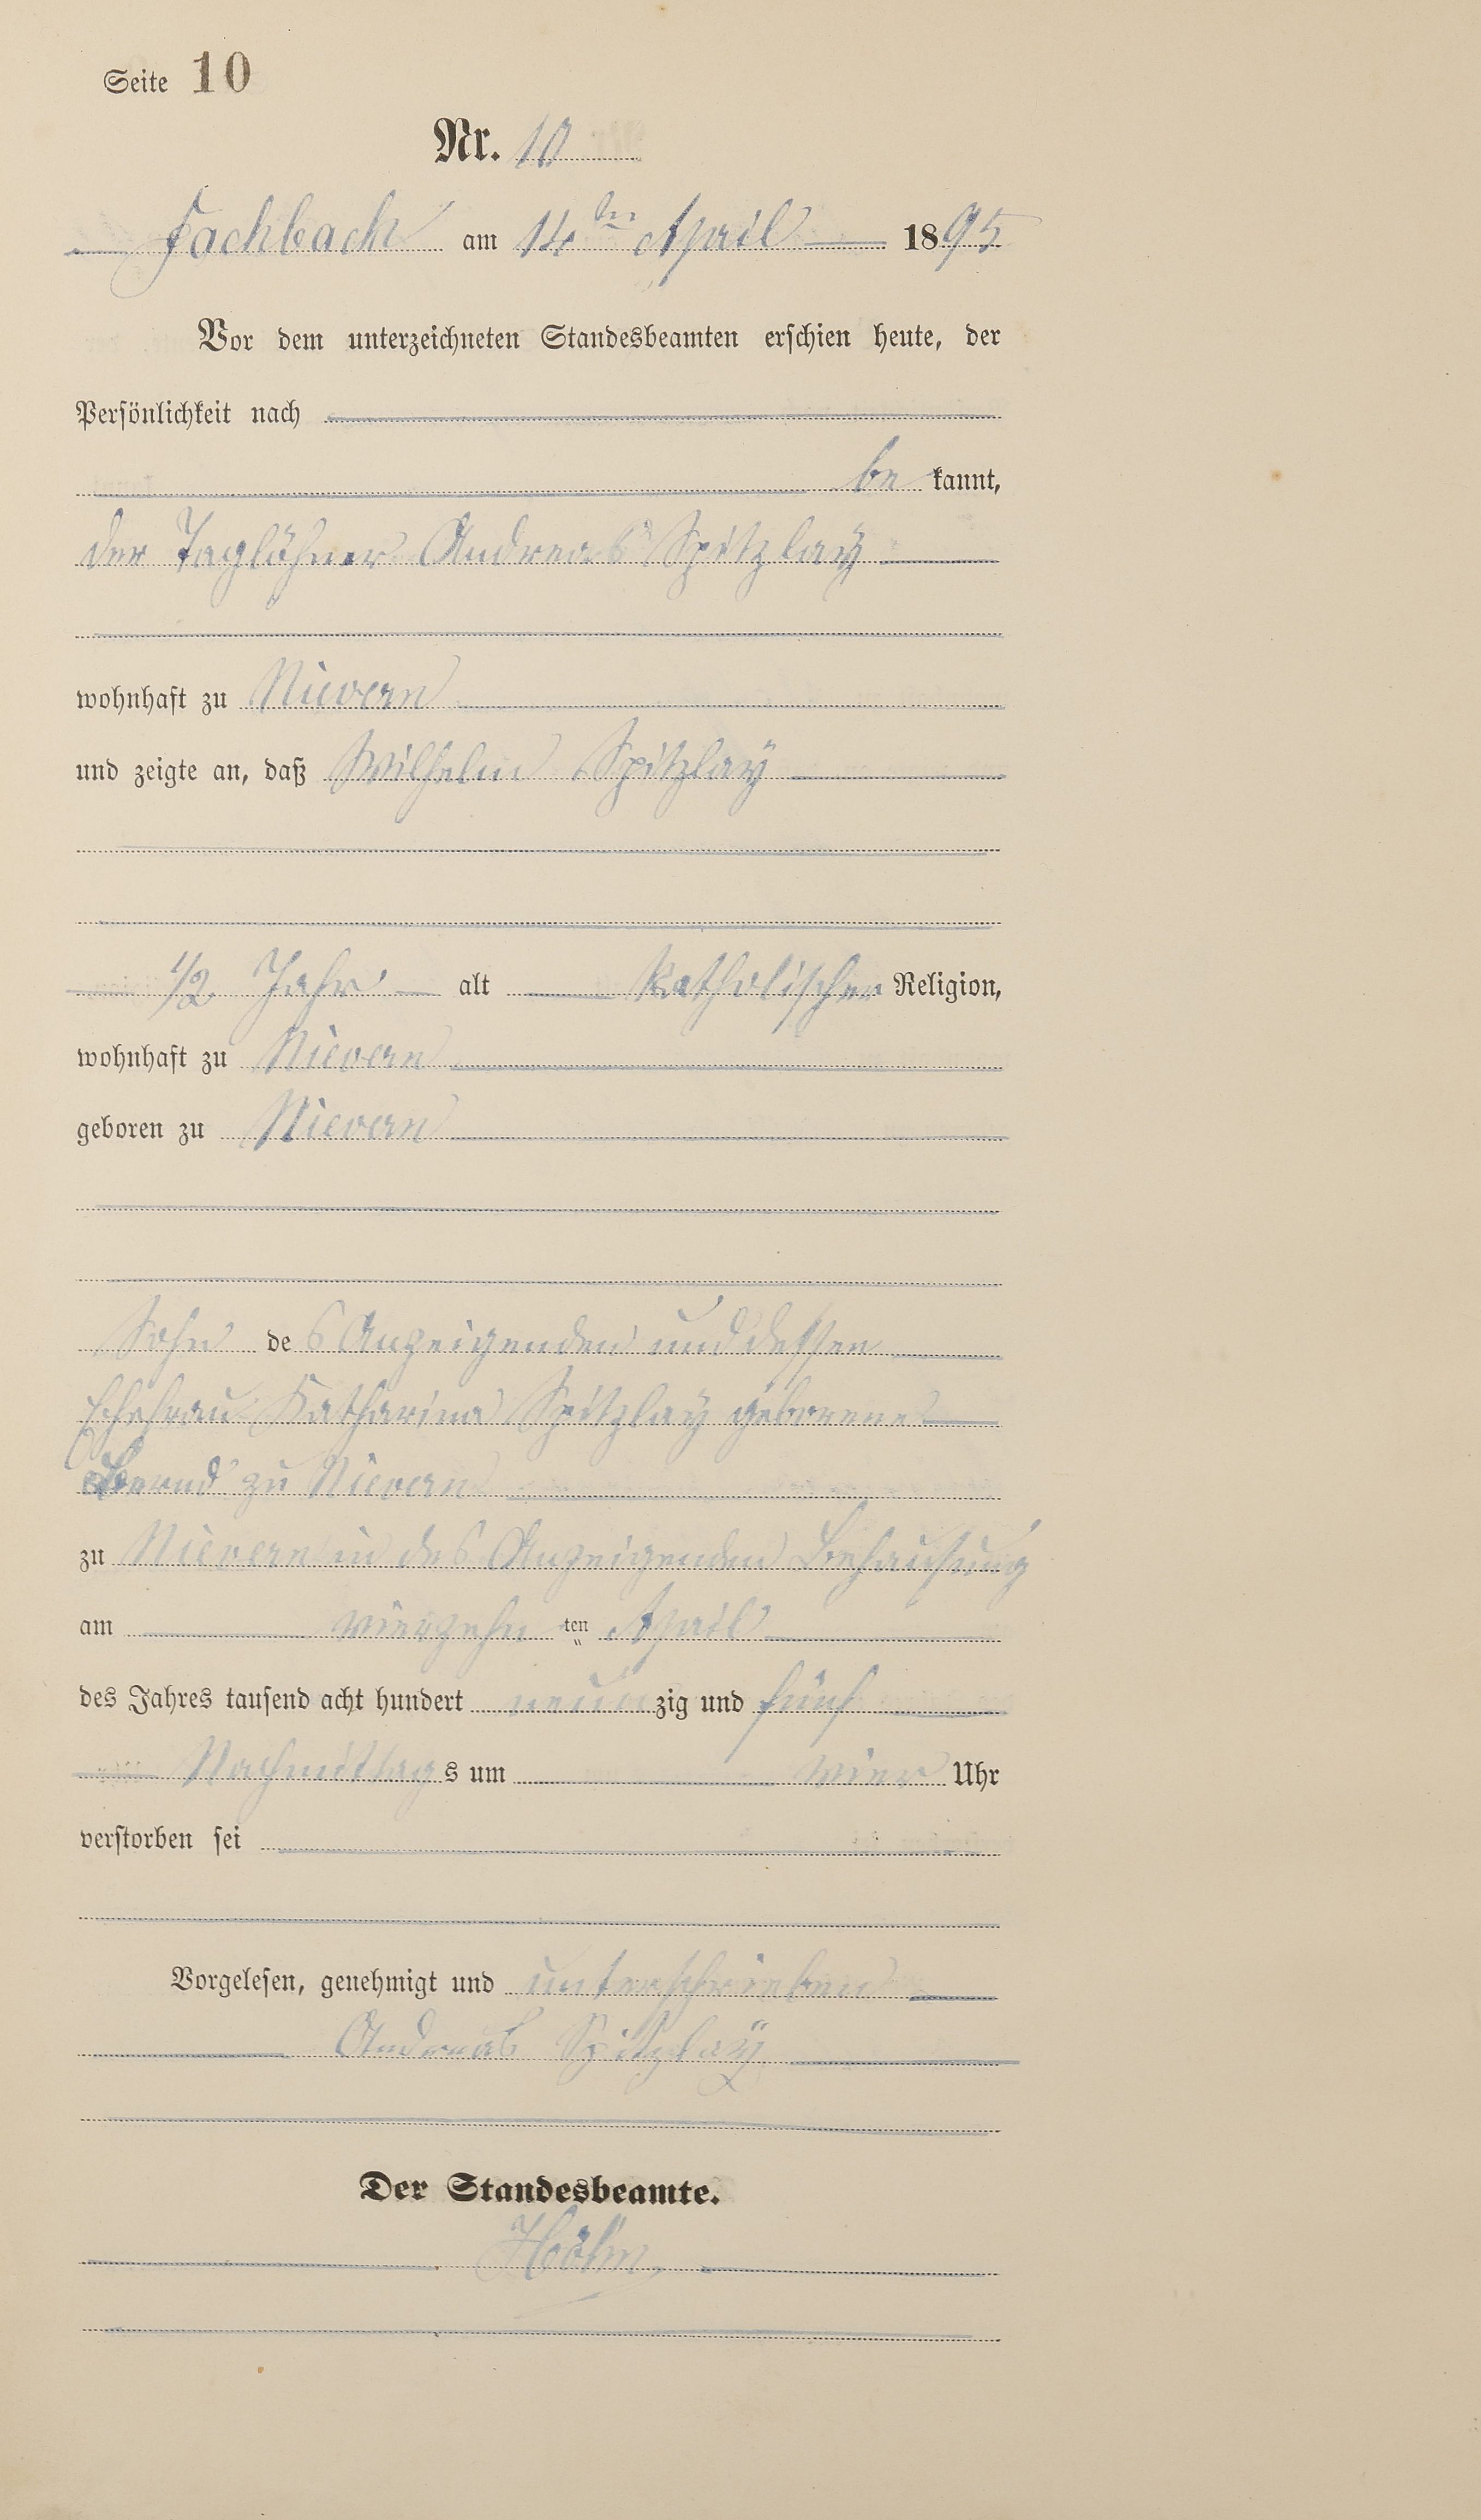 Seite 10
Nr. 10
Fachbach am 14ten April 1895
Vor dem unterzeichneten Standesbeamten erschien heute, der
Persönlichkeit nach
be kannt,
der Taglöhner Andreas Spitzlay
wohnhaft zu Nievern
und zeigte an, daß Wilhelm Spitzlay
1/2 Jahr alt katholischer Religion,
wohnhaft zu Nievern
geboren zu Nievern
Sohn des Anzeigenden und dessen
Ehefrau Katharina Spitzlay geborene
zu Nievern
zu Nievern in des Anzeigenden Behausung
am vierzehn ten April
des Jahres tausend acht hundert neunzig und fünf
Nachmittags um vier Uhr
verstorben sei
Vorgelesen, genehmigt und unterschrieben
Andreas Spitzlaÿ
Der Standesbeamte.